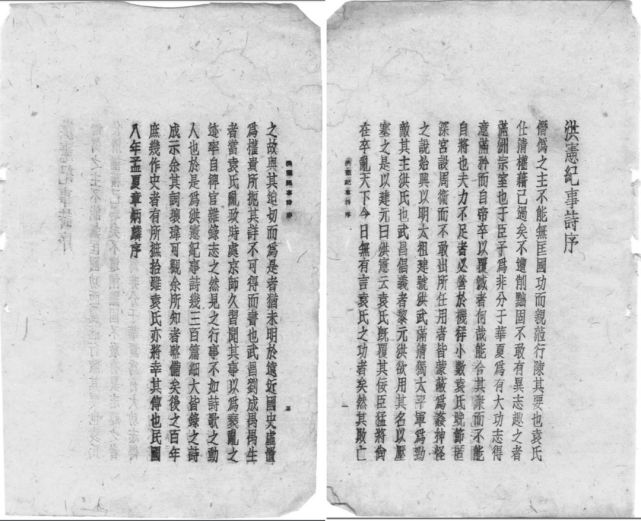 洪憲紀事詩序
僭偽之主不能無匡國功而親莅行陳其要也袁氏
仕清權藉已過矣不遭削黜固不敢有異志趣之者
滿洲宗室也于臣子為非分于華夏為有大功志得
意滿矜而自帝卒以覆滅者何哉能合其衆而不能
自將也夫力不足者必營於禨祥小數袁氏晚節匿
深宮設周衛而不敢出所任用者皆蒙蔽為姦神怪
之說始興以明太祖建號洪武滿清獨太平軍為勁
敵其主洪氏也武昌倡義者黎元洪欲用其名以壓
塞之是以建元曰洪憲云袁氏既覆其佞臣猛將尚
在卒亂天下今日無有言袁氏之功者矣然其敗亡
洪憲紀事詩 序
一
洪憲紀事詩 序
之故與其迫切而為是者猶未明於遠近國史虛置
為權貴所扼其詳不可得而書也武昌劉成禺禺生
者當袁氏亂政時處京師久習聞其事以為衰亂之
迹率自稗官雜錄志之然見之行事不如詩歌之動
人也於是為洪憲紀事詩幾三百篇細大皆錄之詩
成示余其詞瓌瑋可觀余所知者略備矣後之百年
庶幾作史者有所摭拾雖袁氏亦將幸其傳也民國
八年孟夏章炳麟序